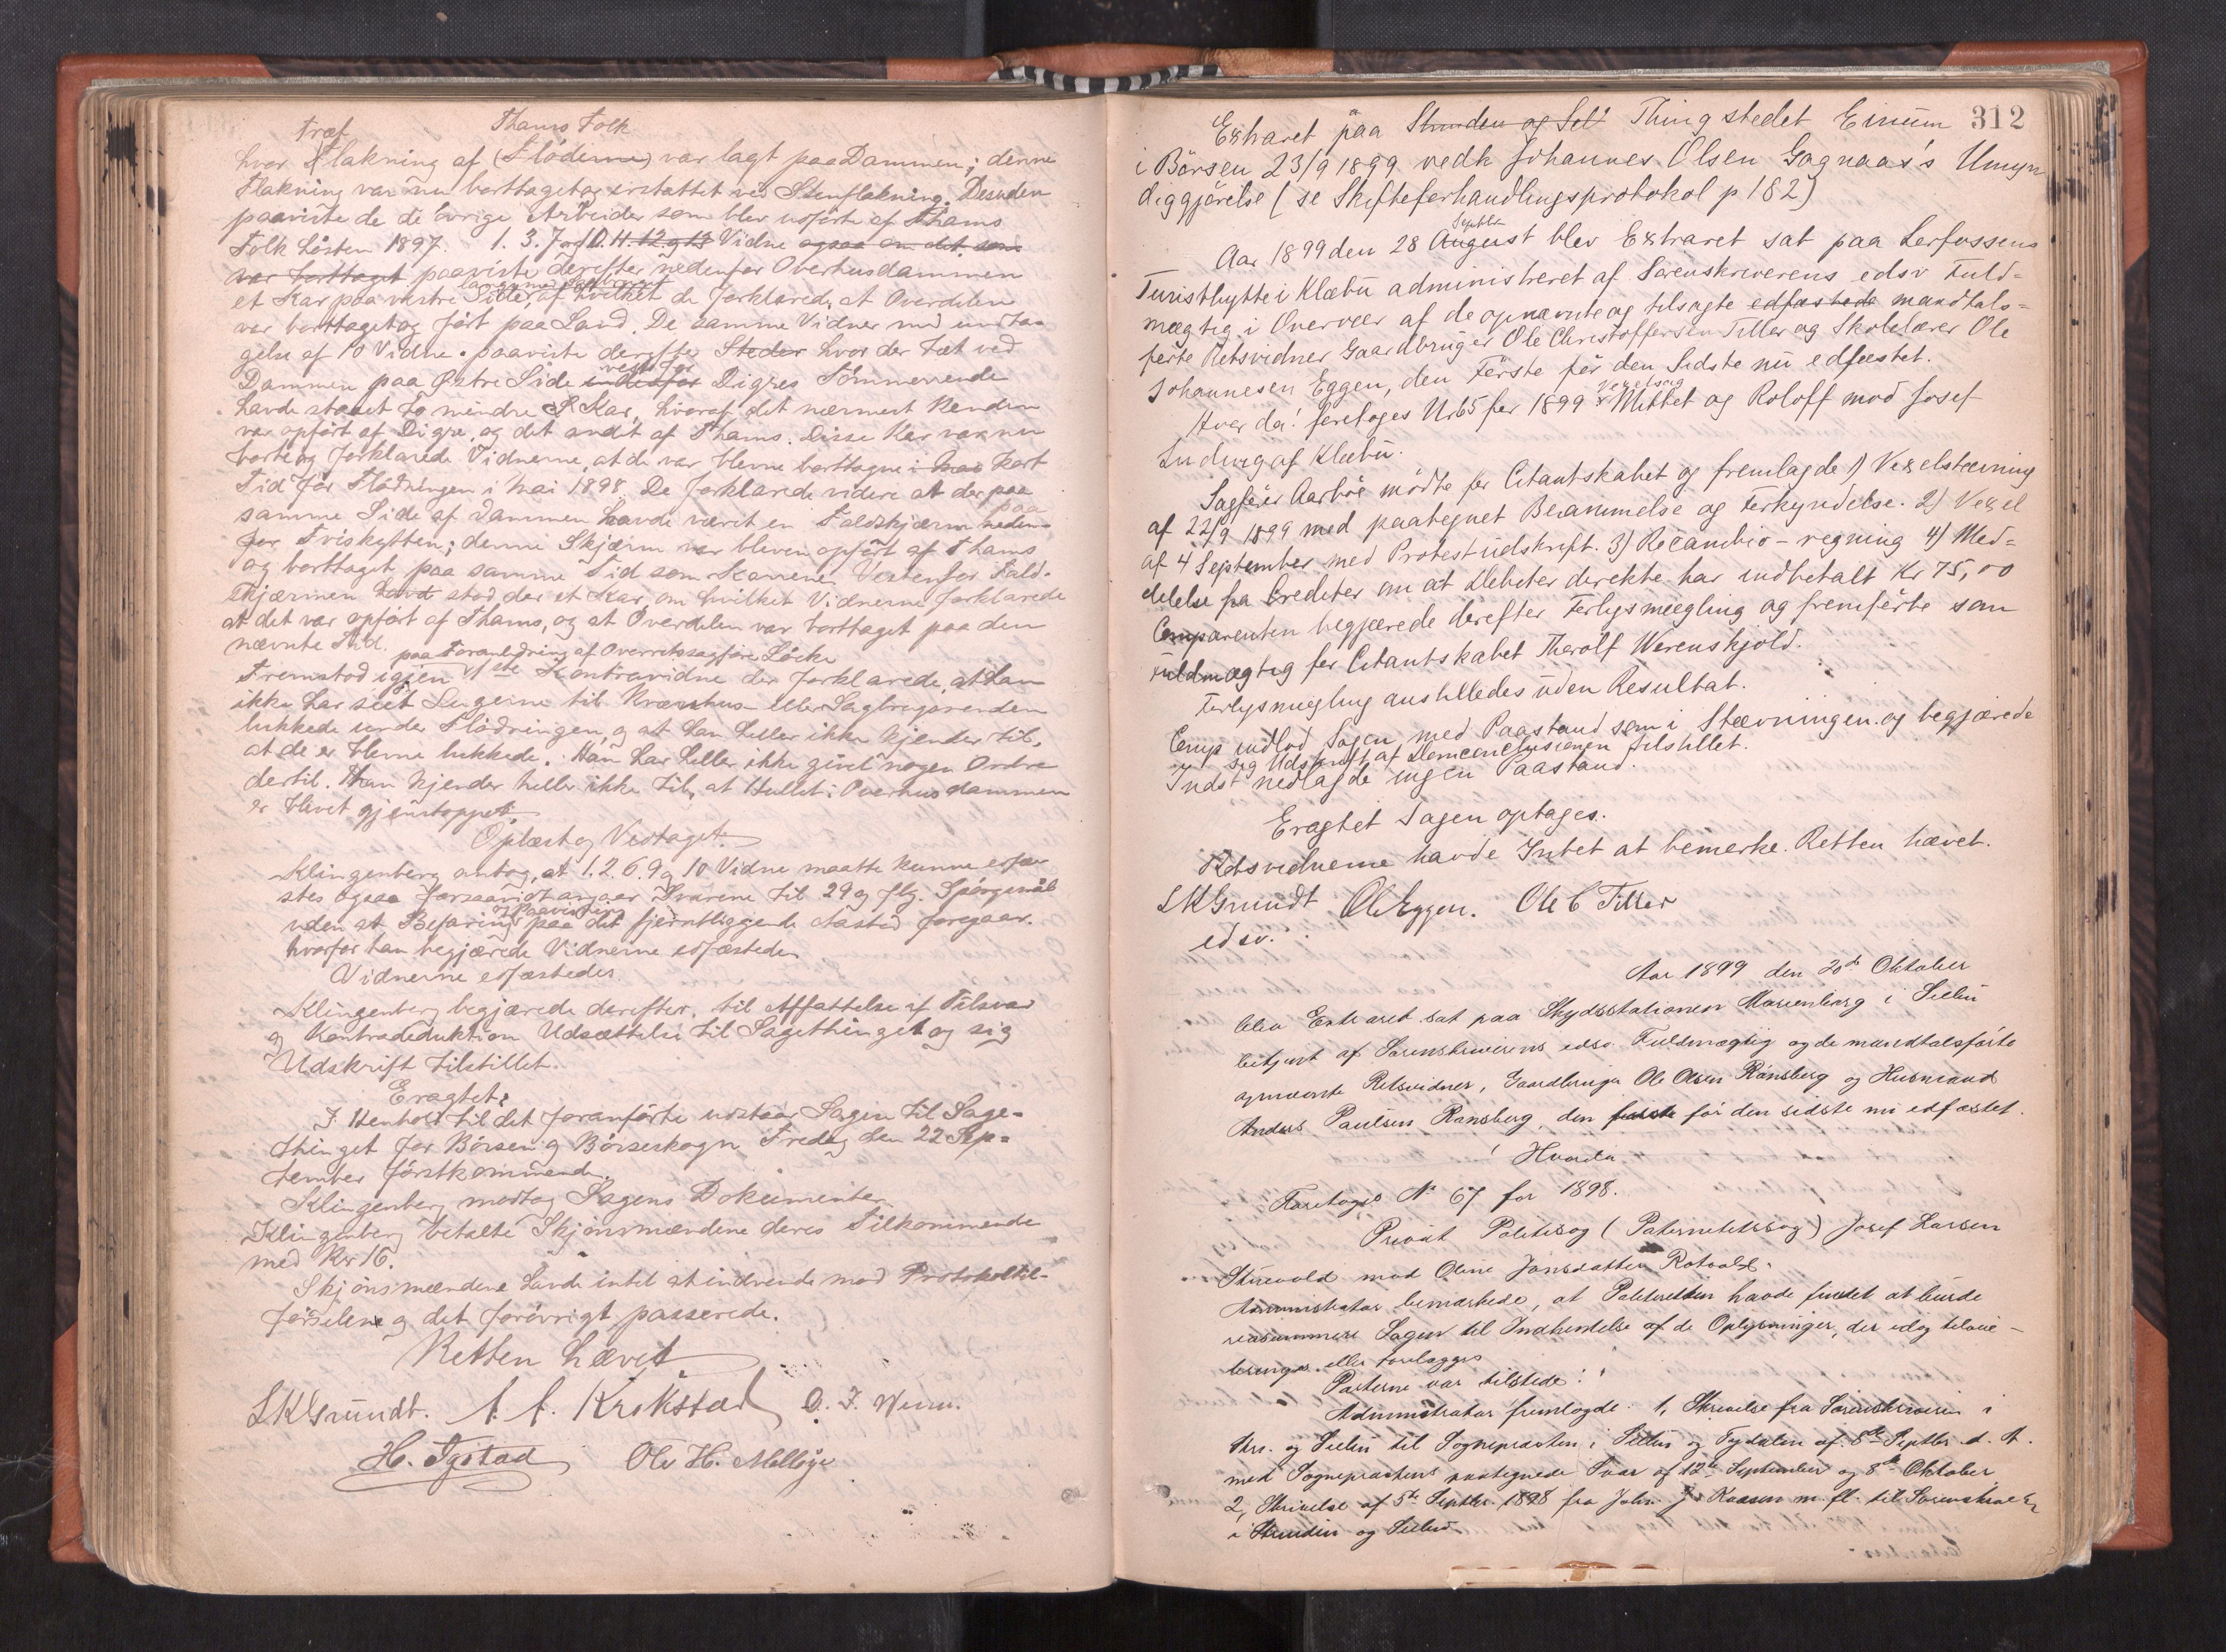 træf Thams Folk
hvor Flakning af (Fløderne) var lagt paa Dammen; denne
Flakning var nu borttaget og erstattet ved Stenflakning. Desuden
paaviste de de övrige Arbeider som blev udförte af Thams
Folk Hösten 1897. 1. 3. 7 og 10. 11. 12. og 13 Vidne ogsaa om det som
var borttaget paaviste derefter nedenfor Overhusdammen
et Kar paa vestre Side, af hvilket de forklarede, at Overdelen
var borttaget og fört paa Land. De samme Vidner med undta-
gelse af 10 Vidne paaviste derefter Steder hvor der tæt ved
Dammen paa Östre Side vestfor Digres Tömmerrende
havde staaet to mindre Kar, hvoraf det nærmest Renden
var opfört af Digre, og det andet af Thams. Disse Kar var nu
borte og forklarede Vidnerne, at de var blevne borttagne i Mai kort
Tid för Flödningen i Mai 1898. De forklarede videre at der paa
samme Side af Dammen havde været en Faldskjærm neden-
for Tviskytten; denne Skjærm var bleven opfört af Thams
og borttaget paa samme Tid som Karrene. Vestenfor Fald-
skjærmen havde stod der et Kar, om hvilket Vidnerne forklarede
at det var opfört af Thams, og at Overdelen var borttaget paa den
nævnte Tid.
paa Foranledning af Overretssagförer Löcke
Fremstod igjen 1ste Kontravidne der forklarede, at han
ikke har seet Lugerne til Kværnhus- eller Sagbrugsrenden
lukkede under Flödningen, og at han heller ikke kjender til,
at de er blevne lukkede. Han har heller ikke givet nogen Ordre
dertil. Han kjender heller ikke til, at Hullet i Overhusdammen
er blevet gjenstoppet.
Oplæst og Vedtaget.
Klingenberg antog, at 1. 2. 6. 9 og 10 Vidne maatte kunne edfæ-
stes ogsaa forsaavidt angaar Svarene til 29 og flg. Spörgsmål
uden at Befaring og Paavisning paa det fjerntliggende Aasted foregaar.
hvorfor han begjærede Vidnerne edfæstede.
Vidnerne edfæstedes.
Klingenberg begjærede derefter, til Affattelse af Tilsvar
og Kontradeduktion Udsættelse til Sagethinget og sig
Udskrift tilstillet.
Eragtet:
I Henhold til det foranförte udstaar Sagen til Sage-
thinget for Börsen og Börseskogn Fredag den 22 Sep-
tember förstkommende.
Klingenberg modtog Sagens Dokumenter
Klingenberg betalte Skjönsmændene deres Tilkommende
med Kr 16.
Skjönsmændene havde intet at indvende mod Protokoltil-
förslene og det forövrigt passerede.
Retten hævet
LKGrundt. Krokstad O. J. Winn.
H. Tystad Ole H. Mellöye
312
Extraret paa Strinden og Sel Thingstedet Einum
i Börsen 23/9 1899 vedk Johannes Olsen Gagnaas's Umyn
diggjörelse (se Skifteforhandlingsprotokol p 182)
Septbr
Aar 1899 den 28 August blev Extraret sat paa Lerfossens
Turisthytte i Klæbu administreret af Sorenskriverens edsv Fuld-
mægtig i Overvær af de opnævnte og tilsagte edfæstede mandtals-
förte Retsvidner Gaardbruger Ole Christoffersen Tiller og Skolelærer Ole
Johannesen Eggen, den Förste för den Sidste nu edfæstet.
Hvor da! foretoges Nr 65 for 1899 Vexelsag Mittet og Roloff mod Josef
Ludvig af Klæbu.
Sagförer Aarhoe mödte for Citantskabet og fremlagde 1) Vexelstævning
af 22/9 1899 med paategnet Berammelse og Forkyndelse. 2) Vexel
af 4 September med Protestudskrift. 3) Recambio-regning 4) Med-
delelse fra Crediter om at Debeter direkte har indbetalt Kr 75,00
Comparenten begjærede derefter Forligsmægling og fremförte som
Fuldmægtig for Citantskabet Therolf Werenskjold.
Forligsmægling anstilledes uden Resultat.
Comp indlod Sagen med Paastand som i Stævningen og begjærede
sig Udskrift af Domconclusionen tilstillet.
Indst nedlagde ingen Paastand.
Eragtet Sagen optages.
Retsvidnerne havde Intet at bemerke. Retten hævet.
LKGrundt Ole Eggen. Ole C Tiller
edsv.
Aar 1899 den 20de Oktober
blev Extraret sat paa Skydsstationen Marienborg i Selbu
betjent af Sorenskriverens edsv. Fuldmægtig og de mandtalsförte
opnævnte Retsvidner, Gaardbruger Ole Olsen Rønsberg og Husmand
Anders Paulsen Rønsberg, den förste för den sidste nu edfæstet.
Hvorda
Foretoges No 67 for 1898.
Privat Politisag (Paternitetssag) Josef Larsen
Stuevold mod Oline Jonsdatter Rotvold.
Administrator bemærkede, at Politiretten havde fundet at burde
reassummere Sagen til Indhentelse af de Oplysninger, der idag tilveie-
bringes eller forelægges
Parterne var tilstede.
Administrator fremlagde: 1, Skrivelse fra Sorenskriveren i
Str. og Selbu til Sognepræsten i Selbu og Tydalen af 8de Septbr d. A.
med Sognepræstens paategnede Svar af 12te September og 8de Oktober
2, Skrivelse af 5te Septbr 1898 fra John J Kaasen m. fl. til Sorenskriver
i Strinden og Selbu